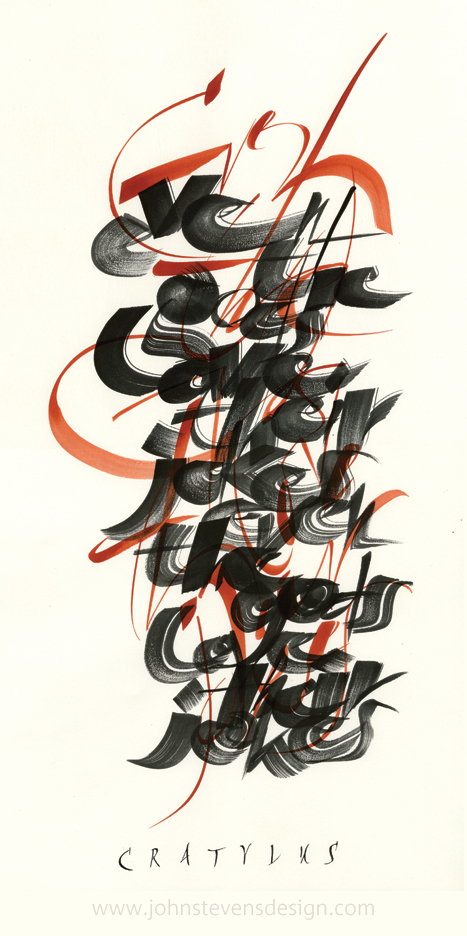 even
the
gods
love
their
jokes
even
the
gods
love
their
jokes
CRATYLUS
www.johnstevensdesign.com